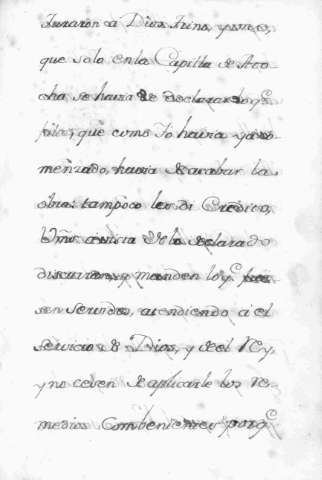 Juraron a Dios Trino, y uno,
que solo en la Capilla de Ato
cha se havia de declarar lo q.^e
que como Yo havia ya co
menzado, havia de acabar la
obra: tampoco les di Credito,
de lo declarado
y manden lo q.^e
sen servidos, atendiendo a el
servicio de Dios, y de el Rey,
y no cesen de aplicarle los re
medios Combenientes porq.^e